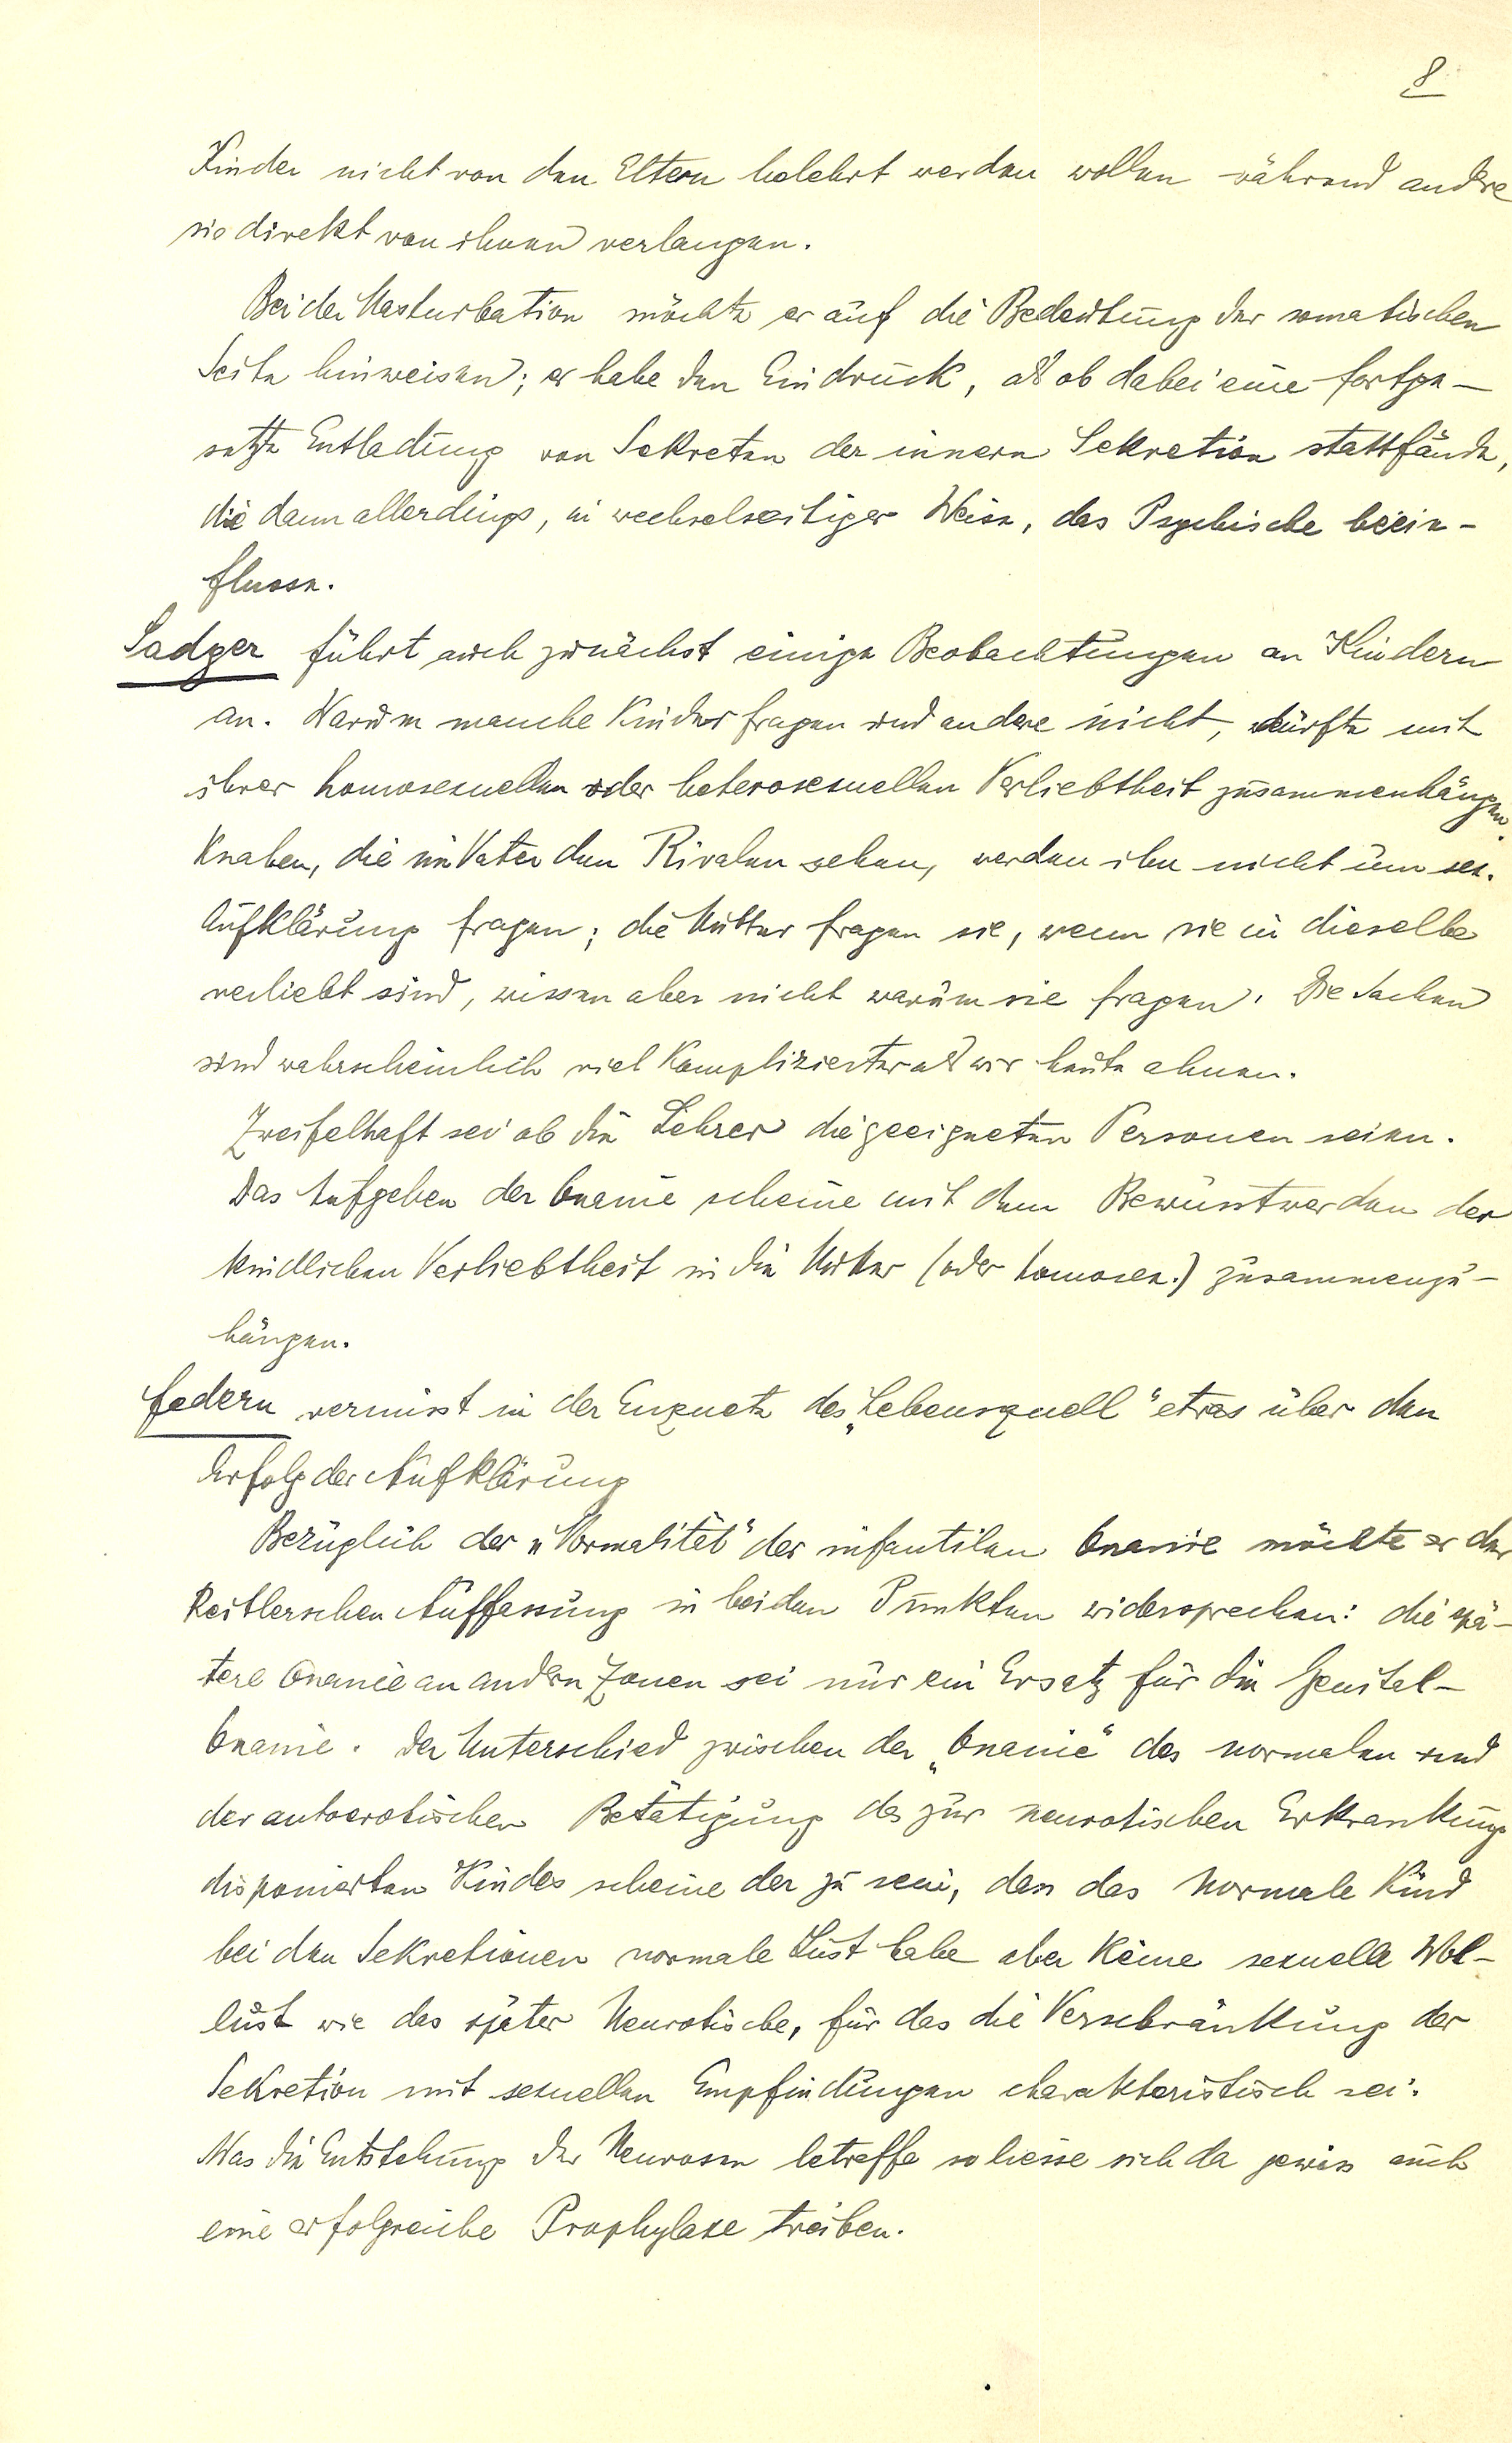 8
Kinder nicht von den Eltern belehrt werden wollen während andre
sie direkt von ihnen verlangen.
Bei der Masturbation möchte er auf die Bedeutung der somatischen
Seite hinweisen; er habe den Eindruck, als ob dabei eine fortge-
setzte Entladung von Sekreten der innern Sekretion stattfände,
die dann allerdings, in wechselseitiger Weise, das Psychische beein-
flusse.
Sadger führt auch zunächst einige Beobachtungen an Kindern
an. Warum manche Kinder fragen und andere nicht, dürfte mit
ihrer homosexuellen oder heterosexuellen Verliebtheit zusammenhängen.
Knaben, die im Vater den Rivalen sehen, werden ihn nicht um sex.
Aufklärung fragen; die Mutter fragen sie, wenn sie in dieselbe
verliebt sind, wissen aber nicht warum sie fragen. Die Sachen
sind wahrscheinlich viel komplizierter als wir heute ahnen.
Zweifelhaft sei ob die Lehrer die geeigneten Personen seien.
Das Aufgeben der Onanie scheine mit dem Bewusstwerden der
kindlichen Verliebtheit in die Mutter (oder homosex.) zusammenzu-
hängen.
Federn vermisst in der Enquete des „Lebensquell" etwas über den
Erfolg der Aufklärung
Bezüglich der „Normalität" der infantilen Onanie möchte er der
Reitlerschen Auffassung in beiden Punkten widersprechen: die spä-
tere Onanie an andern Zonen sei nur ein Ersatz für die Genital-
Onanie. Der Unterschied zwischen der „Onanie" des normalen und
der autoerotischen Betätigung des zur neurotischen Erkrankung
disponierten Kindes scheine der zu sein, dass das normale Kind
bei den Sekretionen normale Lust habe aber keine sexuelle Wol-
lust wie das später Neurotische, für das die Verschränkung der
Sekretion mit sexuellen Empfindungen charakteristisch sei.
Was die Entstehung der Neurosen betreffe so liesse sich da gewiss auch
eine erfolgreiche Prophylaxe treiben.